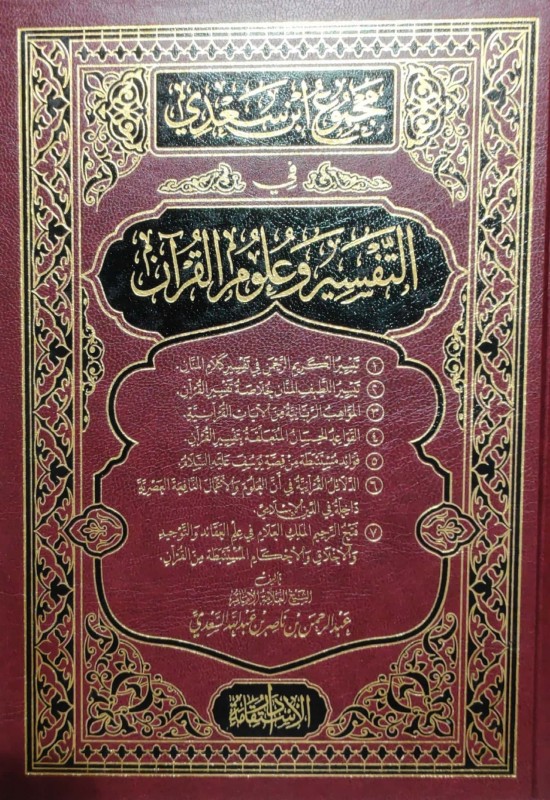 مجموع ابن سعدي
في
التفسير وعلوم القرآن
١ تيسير الكريم الرحمن في تفسير كلام المنان.
٢ تيسير اللطيف المنان بخلاصة تفسير القرآن.
٣ المواهب الربانية من الآيات القرآنية.
٤ القواعد الحسان المتعلقة بتفسير القرآن.
٥ فوائد مستنبطة من قصة يوسف عليه السلام.
٦ الدلائل القرآنية في أن العلوم والأعمال النافعة العصرية
داخلة في الدين الإسلامي.
٧ فتح الرحيم الملك العلام في علم العقائد والتوحيد
والأخلاق والأحكام المستنبطة من القرآن.
تأليف
الشيخ العلامة الإمام
عبد الرحمن بن ناصر بن عبد الله السعدي
دار الاستقامة